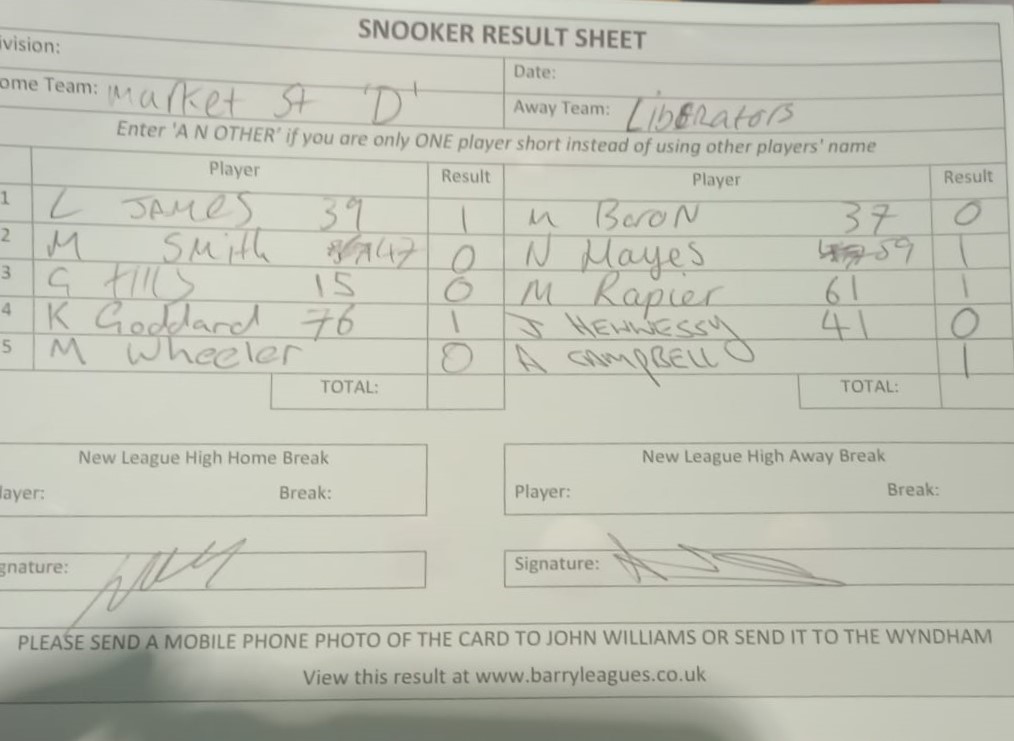 SNOOKER RESULT SHEET
ivision:
Date:
ome Team: Market St 'D'
Away Team: Liberators
Enter 'A N OTHER' if you are only ONE player short instead of using other players' name
Player Result Player Result
1 L JAMES 39 1 M Baron 37 0
2 M Smith 47 0 N Hayes 59 1
3 G tills 15 0 M Rapier 61 1
4 K Goddard 76 1 J HENNESSY 41 0
5 M Wheeler 0 A CAMPBELL 1
TOTAL: TOTAL:
New League High Home Break New League High Away Break
layer: Break: Player: Break:
gnature: Signature:
PLEASE SEND A MOBILE PHONE PHOTO OF THE CARD TO JOHN WILLIAMS OR SEND IT TO THE WYNDHAM
View this result at www.barryleagues.co.uk